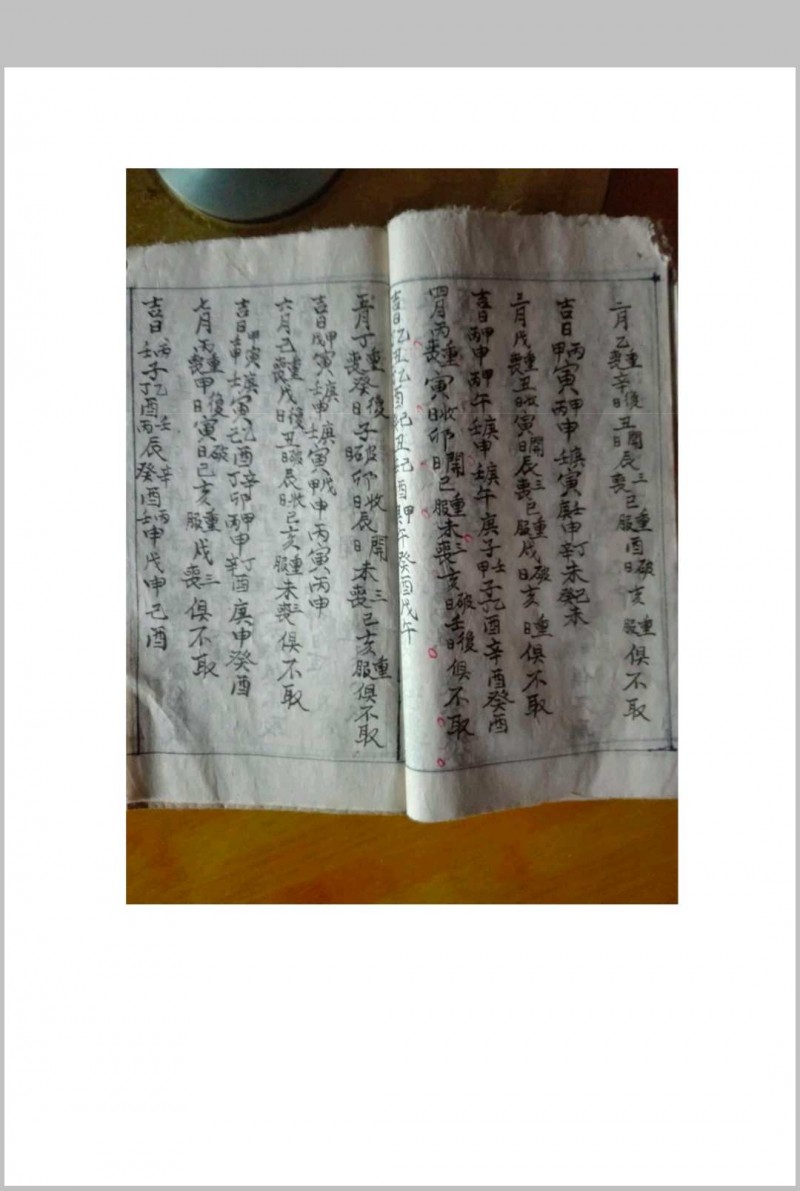 二月乙重喪辛後日丑日開辰三喪巳重服酉日破亥重服俱不取
吉日丙寅甲申丙申庚寅壬寅庚申壬申辛未丁未己未癸未
三月戊重喪丑日收寅日開辰三喪巳重服戌日破亥日重俱不取
吉日丙申甲申丙午甲午壬申庚申壬午庚午庚子甲子壬子乙酉辛酉癸酉
四月丙重喪寅日收卯日開巳重服未三喪亥日破壬日後俱不取
吉日乙丑乙酉己丑己酉甲午癸酉戊午
五月丁重喪癸後日子日破卯日收辰日開未三喪巳亥重服俱不取
吉日甲寅戊寅庚申壬申庚寅甲申丙寅丙申
六月己重喪戊後日丑日破辰日收巳亥重服未三喪俱不取
吉日甲寅甲申庚寅壬寅乙酉己酉丁卯辛酉甲申丙申丁酉庚申癸酉
七月丙重喪甲後日寅日破巳亥重服戌三喪俱不取
吉日丙子壬子乙酉丁酉壬辰丙辰辛酉癸酉丙申壬申戊申己酉